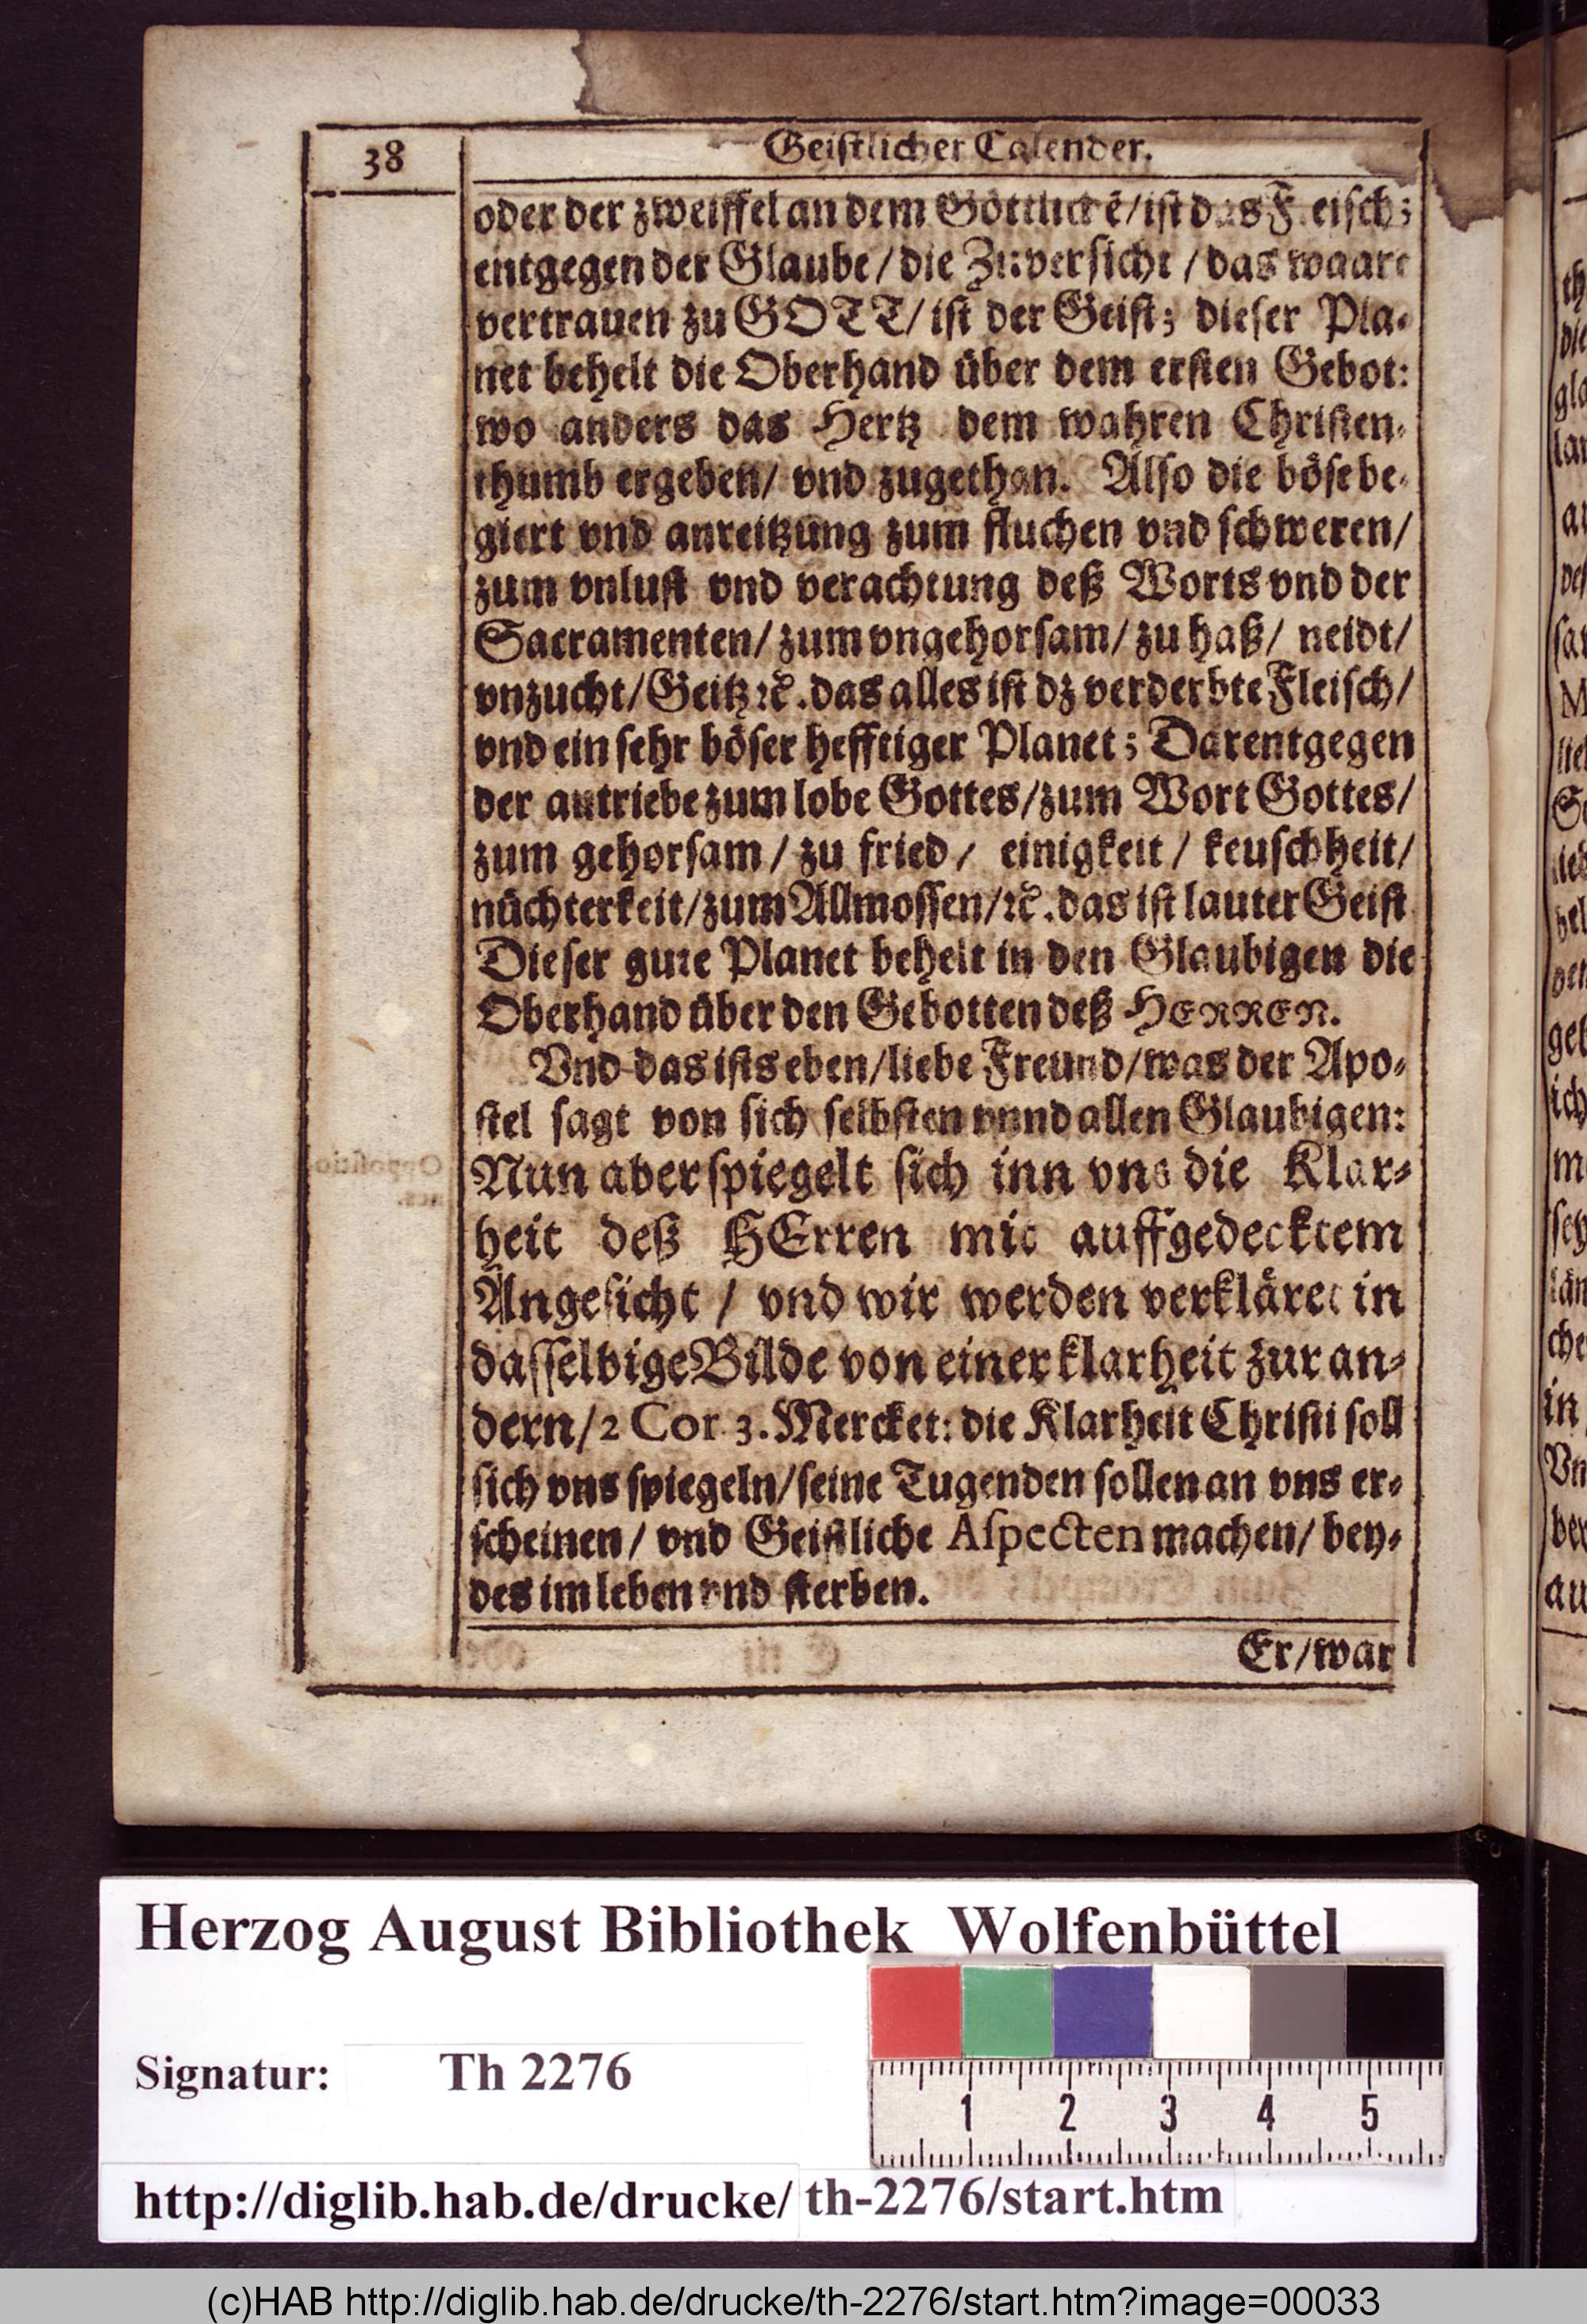 38
Geistlicher Calender.
oder der zweiffel an dem Göttlichē/ ist das Fleisch;
entgegen der Glaube/ die Zuversicht/ das waare
vertrauen zu GOTT/ ist der Geist; dieser Pla-
net behelt die Oberhand über dem ersten Gebot:
wo anders das Hertz dem wahren Christen-
thumb ergeben/ vnd zugethan. Also die böse be-
giert vnd anreitzung zum fluchen vnd schweren/
zum vnlust vnd verachtung deß Worts vnd der
Sacramenten/ zum vngehorsam/ zu haß/ neidt/
vnzucht/ Geitz ꝛc. das alles ist dz verderbte Fleisch/
vnd ein sehr böser hefftiger Planet; Darentgegen
der antriebe zum lobe Gottes/ zum Wort Gottes/
zum gehorsam/ zu fried/ einigkeit/ keuschheit/
nüchterkeit/ zum Allmossen/ ꝛc. das ist lauter Geist
Dieser gute Planet behelt in den Glaubigen die
Oberhand über den Gebotten deß HERREN.
Vnd das ists eben/ liebe Freund/ was der Apo-
stel sagt von sich selbsten vnnd allen Glaubigen:
Nun aber spiegelt sich inn vns die Klar-
heit deß HErren mit auffgedecktem
Angesicht / vnd wir werden verkläret in
dasselbige Bilde von einer klarheit zur an-
dern/ 2 Cor. 3. Mercket: die Klarheit Christi soll
sich vns spiegeln/ seine Tugenden sollen an vns er-
scheinen/ vnd Geistliche Aſpecten machen/ bey-
des im leben vnd sterben.
Er/ war
Herzog August Bibliothek Wolfenbüttel
Signatur: Th 2276
1 2 3 4 5
http://diglib.hab.de/drucke/ th-2276/start.htm
(c)HAB http://diglib.hab.de/drucke/th-2276/start.htm?image=00033